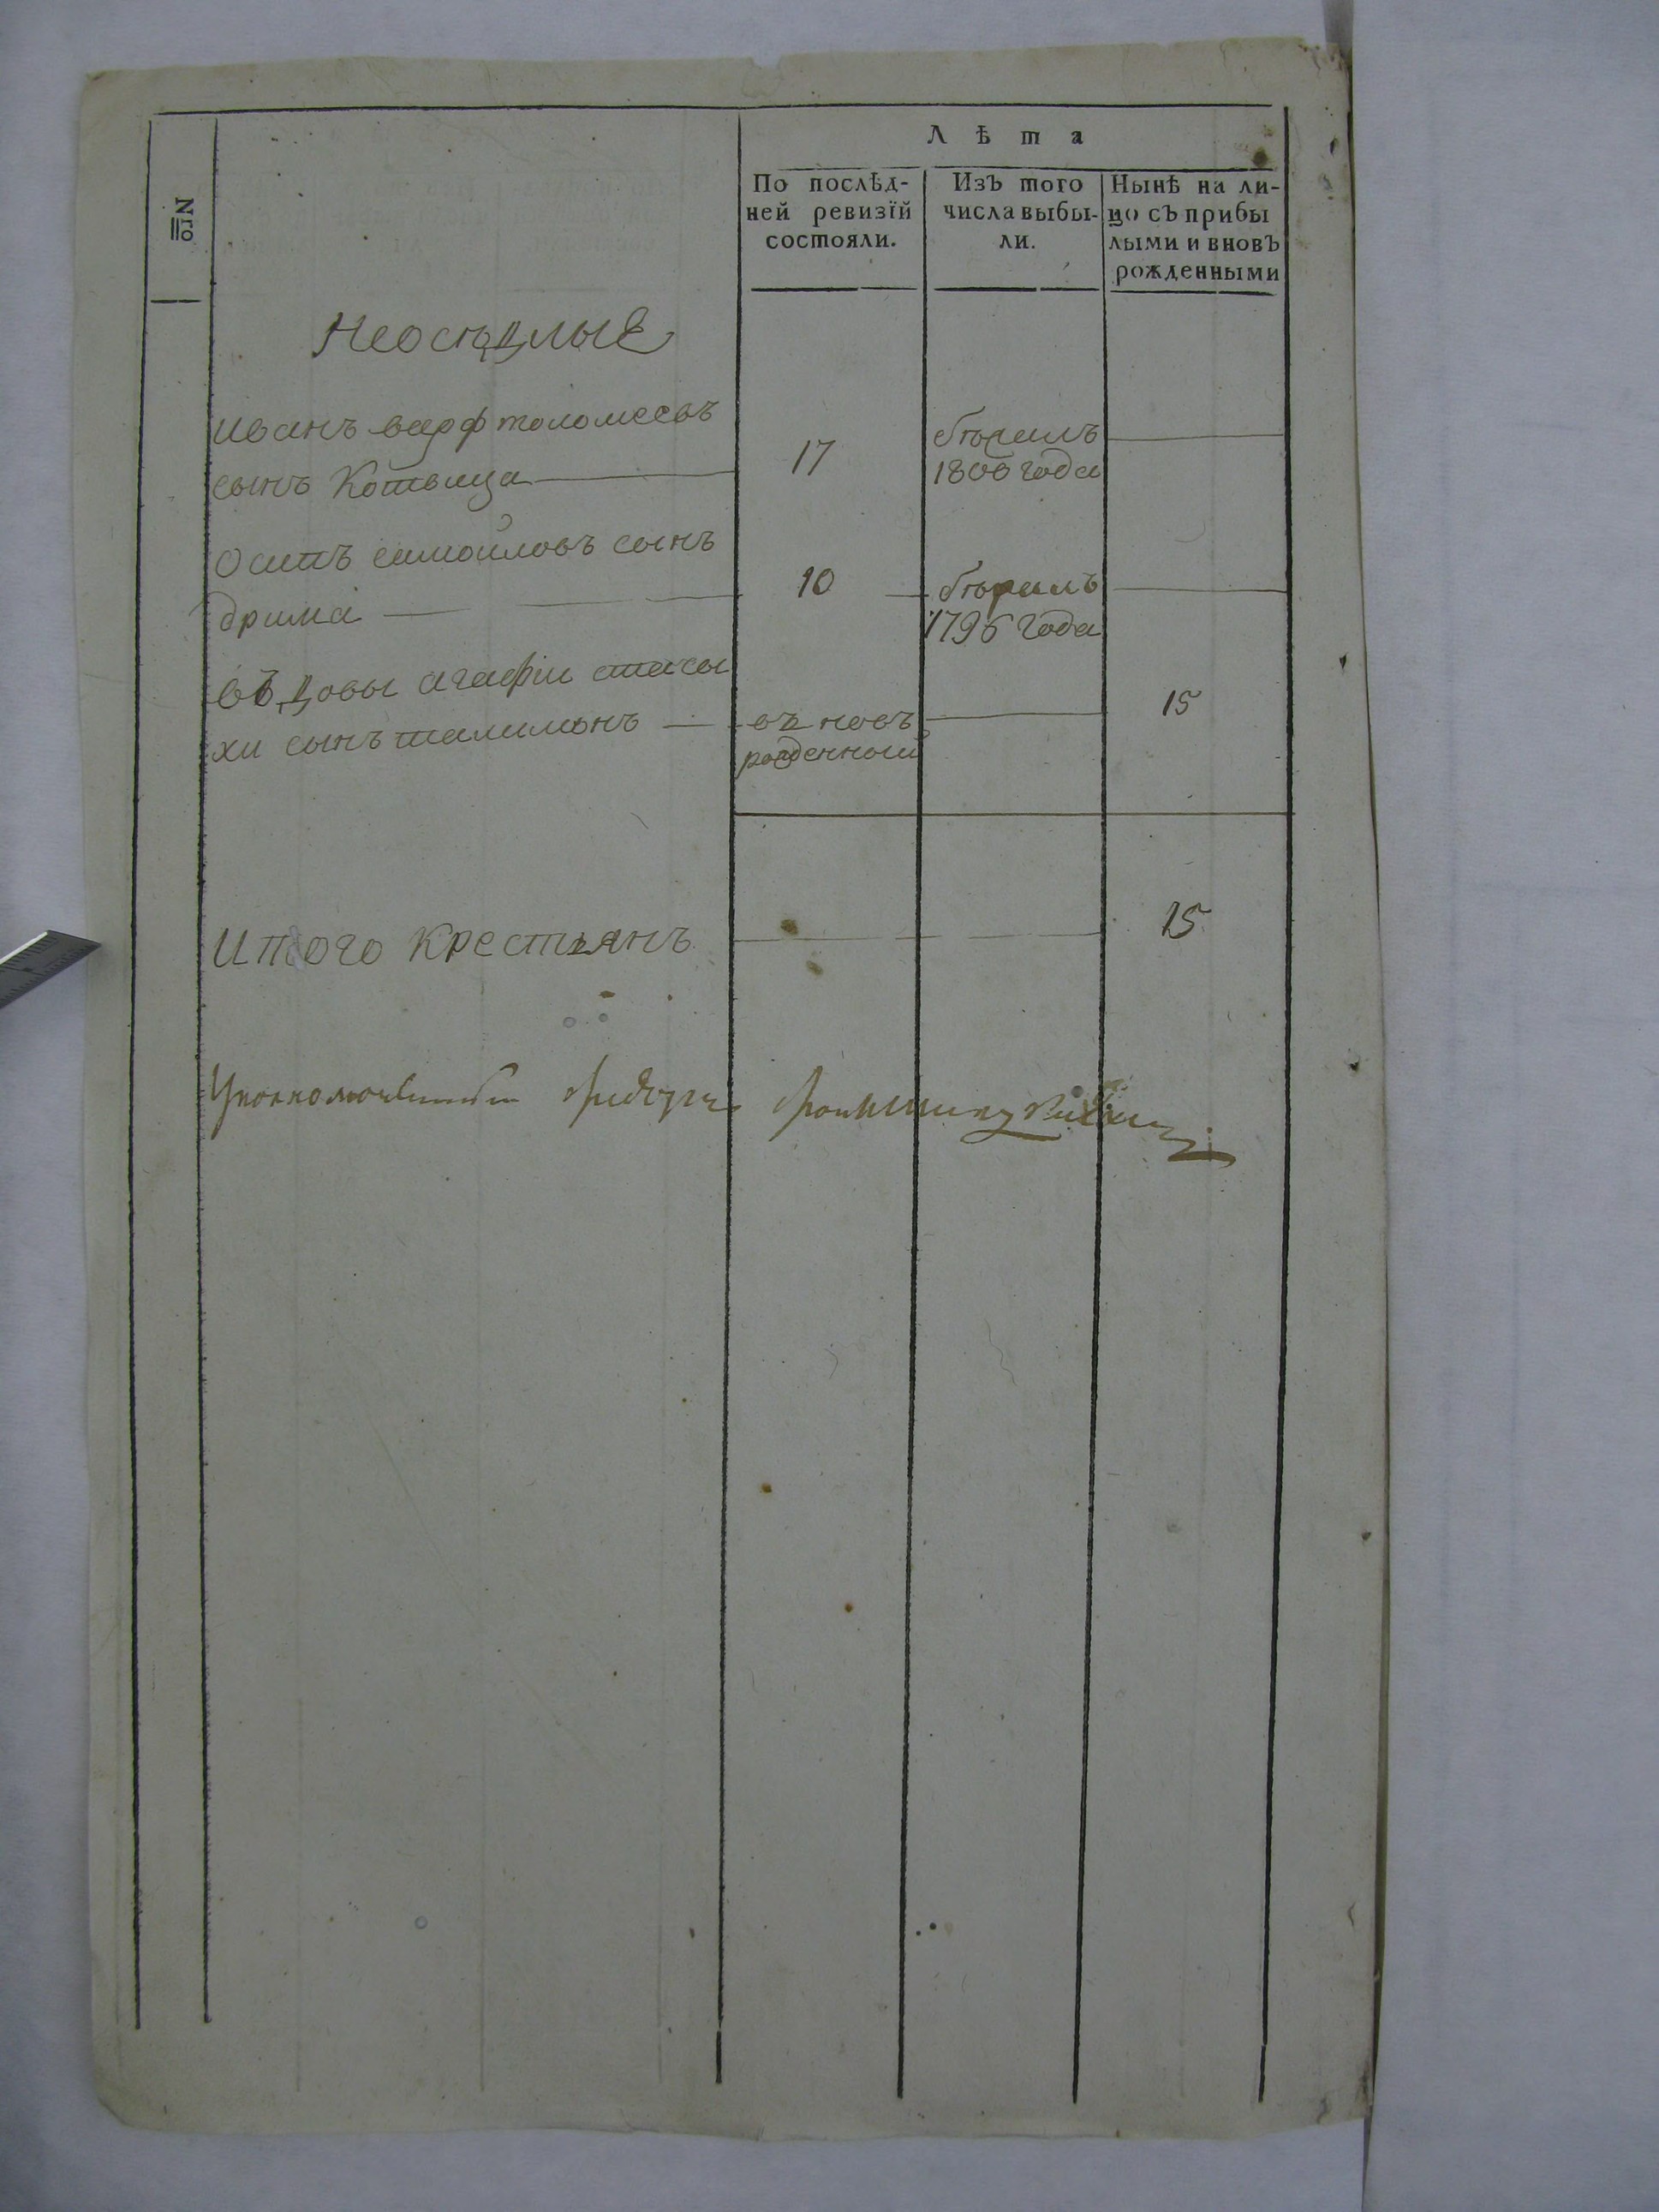 Nо
Лѣта
По послѣд-
ней ревизїй
состояли.
Изъ того
числа выбы-
ли.
Нынѣ на ли-
цо съ прибы
лыми и вновь
рожденными
Неосѣдлые
Иванъ варфтоломеевъ
сынъ Котвица
17
бѣжалъ
1800 года
Осипъ самойловъ сынъ
дрима
10
бѣжалъ
1796 года
въдовы агафiи стасы
хи сынъ талимонъ
въ новъ
рожденный
15
Итого крестьянъ
15